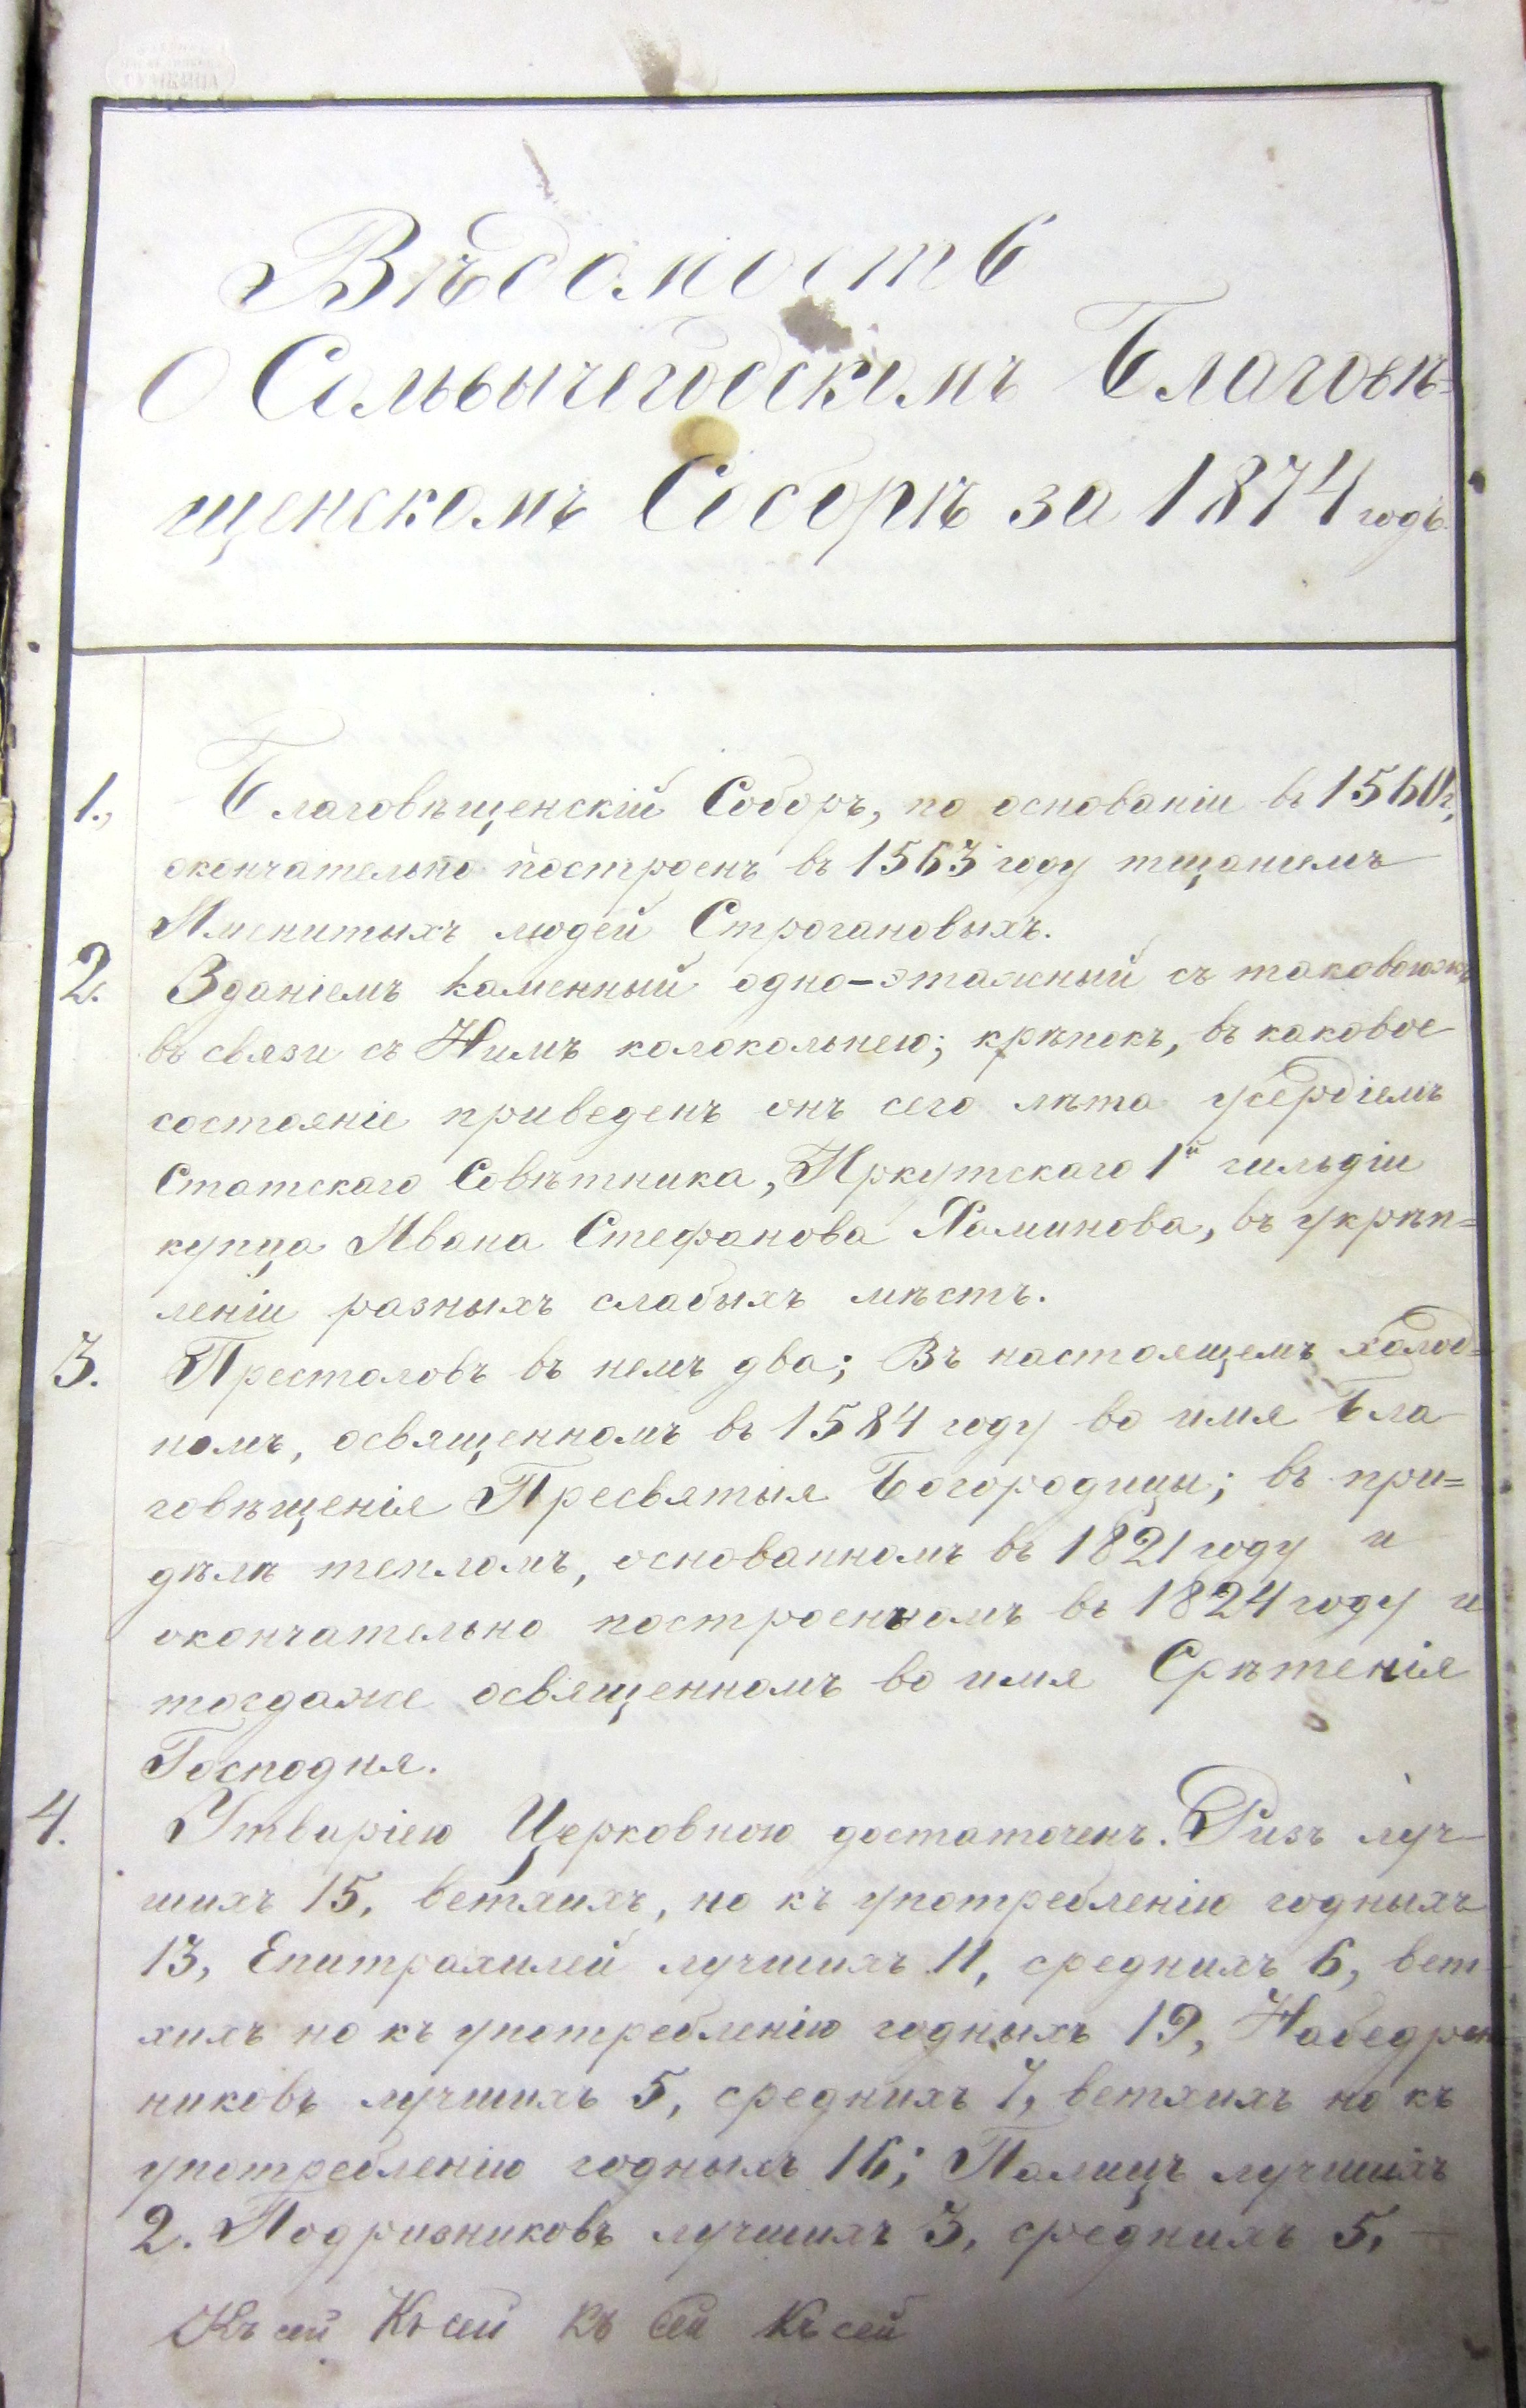 Вѣдомость
О Сольвычегодскомъ Благовѣ=
щенскомъ Соборѣ за 1874 годъ.
1., Благовѣщенскій Соборъ, по основаніи въ 1560 г,
окончательно построенъ въ 1563 году тщаніемъ
Именитыхъ людей Строгановыхъ.
2. Зданіемъ каменный одно-этажный съ таковоюже
въ связи съ Нимъ колокольнею; крѣпокъ, въ каковое
состояніе приведенъ онъ сего лѣта усердіемъ
Статскаго Совѣтника, Иркутскаго 1й гильдіи
купца Ивана Стефанова Хаминова, въ укрѣп=
леніи разныхъ слабыхъ мѣстъ.
3. Престоловъ въ немъ два; Въ настоящемъ холод=
номъ, освященномъ въ 1584 году во имя Бла
говѣщенія Пресвятыя Богородицы; въ при=
дѣлѣ тепломъ, основанномъ въ 1821 году и
окончательно построенномъ въ 1824 году и
тогдаже освященномъ во имя Срѣтенія
Господня.
4. Утварію Церковною достаточенъ. Ризъ луч-
шихъ 15, ветхихъ, но къ употребленію годныхъ
13, Епитрахилей лучшихъ 11, среднихъ 6, вет-
хихъ но къ употребленію годныхъ 19, Набедрен
никовъ лучшихъ 5, среднихъ 7, ветхихъ но къ
употребленію годныхъ 16; Палицъ лучшихъ
2. Подризниковъ лучшихъ 3, среднихъ 5,
Къ сей Къ сей Къ сей Къ сей